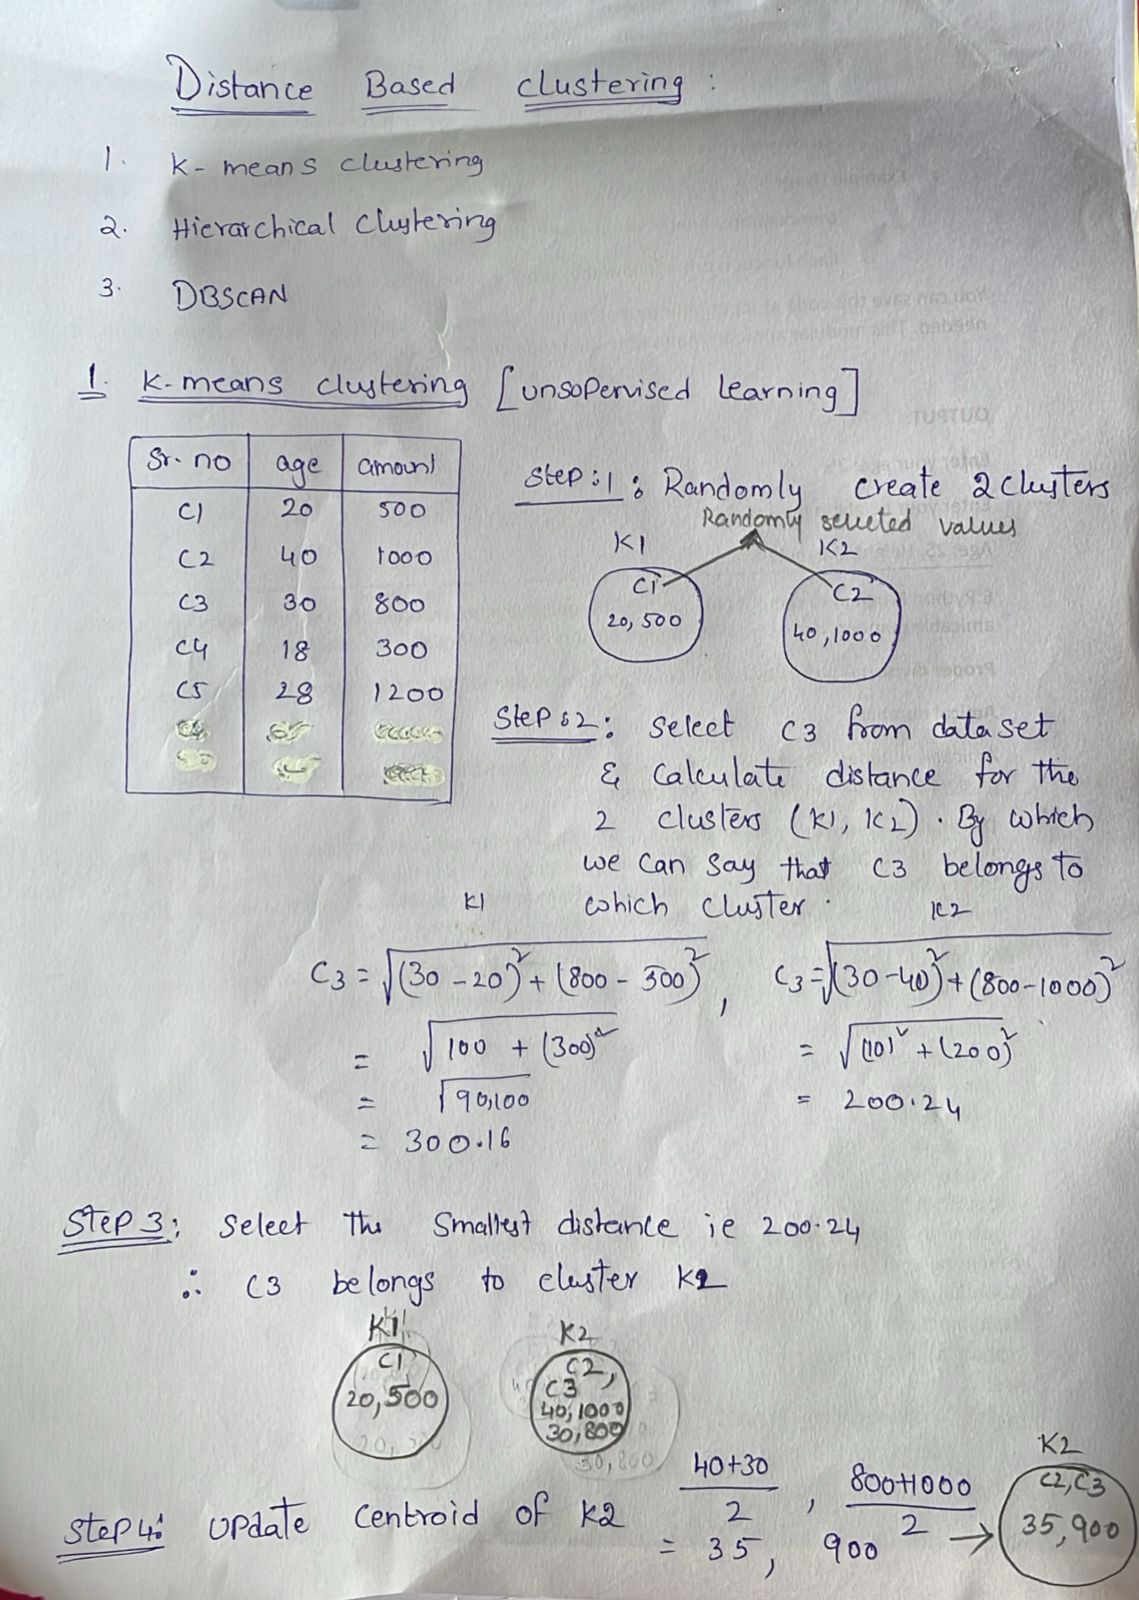 Distance Based clustering :
1. K-means clustering
2. Hierarchical Clustering
3. DBSCAN
1. K-means clustering [unsopervised learning]
Sr. no age amount
C1 20 500
C2 40 1000
C3 30 800
C4 18 300
C5 28 1200
Step:1: Randomly create 2 clusters
Randomly selected values
K1 K2
C1 C2
20, 500 40, 1000
Step:2: select C3 from data set
& calculate distance for the
2 clusters (K1, K2). By which
we can say that C3 belongs to
which cluster.
K1 K2
C3 = √(30-20)² + (800-500)² , C3 = √(30-40)² + (800-1000)²
= √100 + (300)² = √(10)² + (200)²
= √90,100 = 200.24
= 300.16
Step 3: Select the smallest distance ie 200.24
∴ C3 belongs to cluster K2
K1 K2
C1 C2,
20, 500 C3
40, 1000
30, 800
Step 4: Update centroid of K2 40+30/2 , 800+1000/2
= 35, 900 →
K2
C2, C3
35, 900